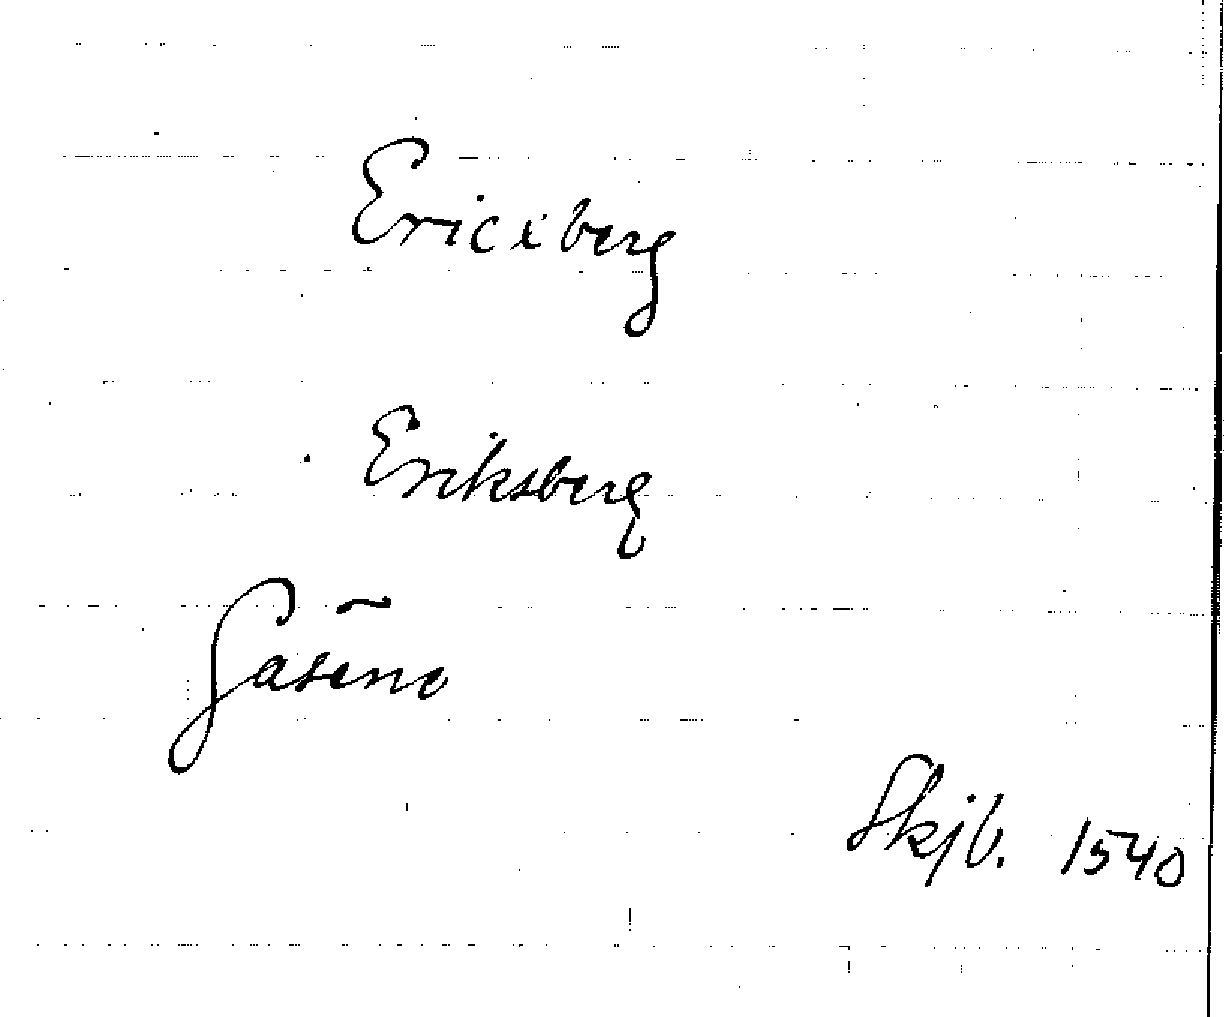 Ericxberg
Eriksberg
Gäsene
Skjb. 1540